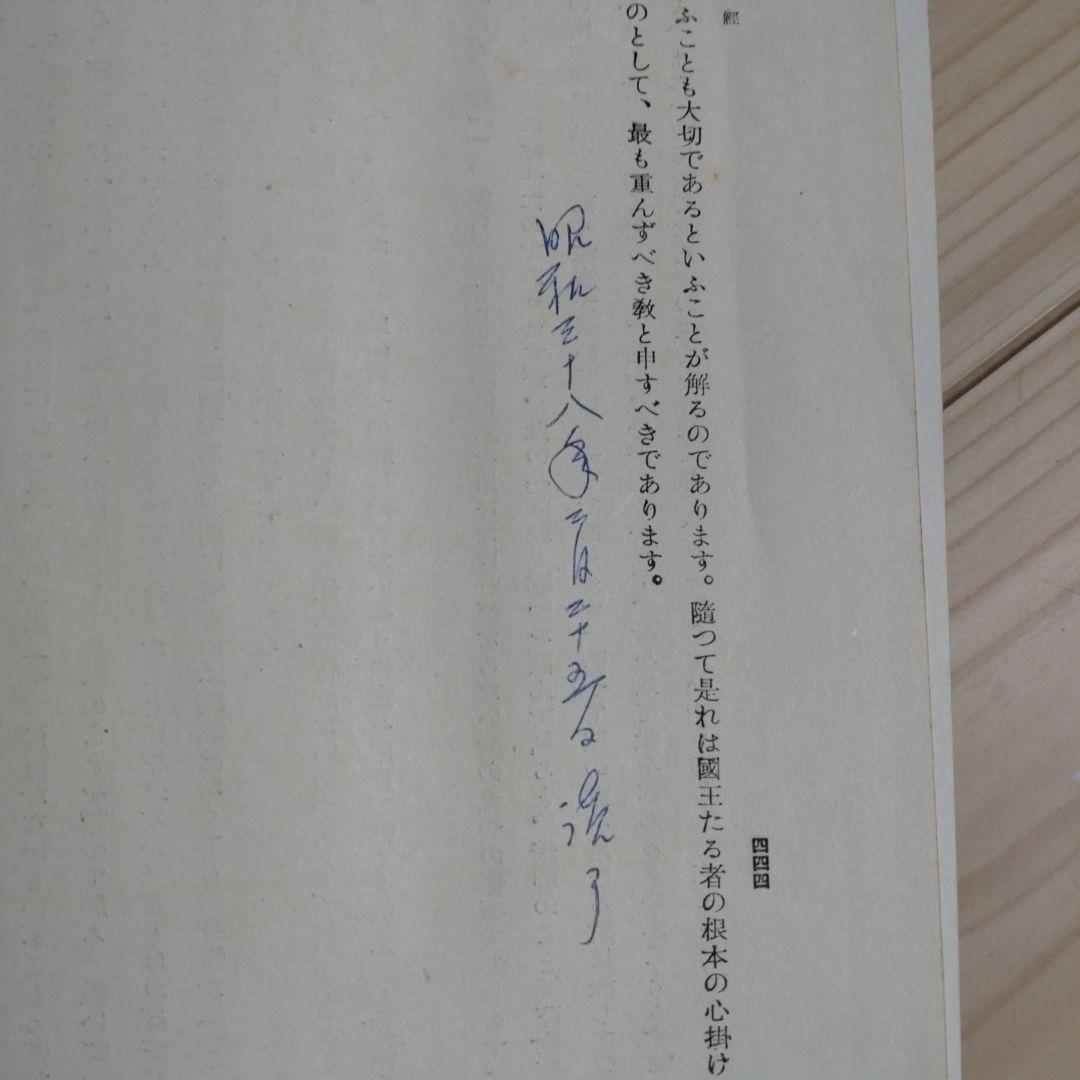 經
ふことも大切であるといふことが解るのであります。隨つて是れは國王たる者の根本の心掛け
のとして、最も重んずべき教と申すべきであります。
昭和三十八年二月二十五日 読了
四四四